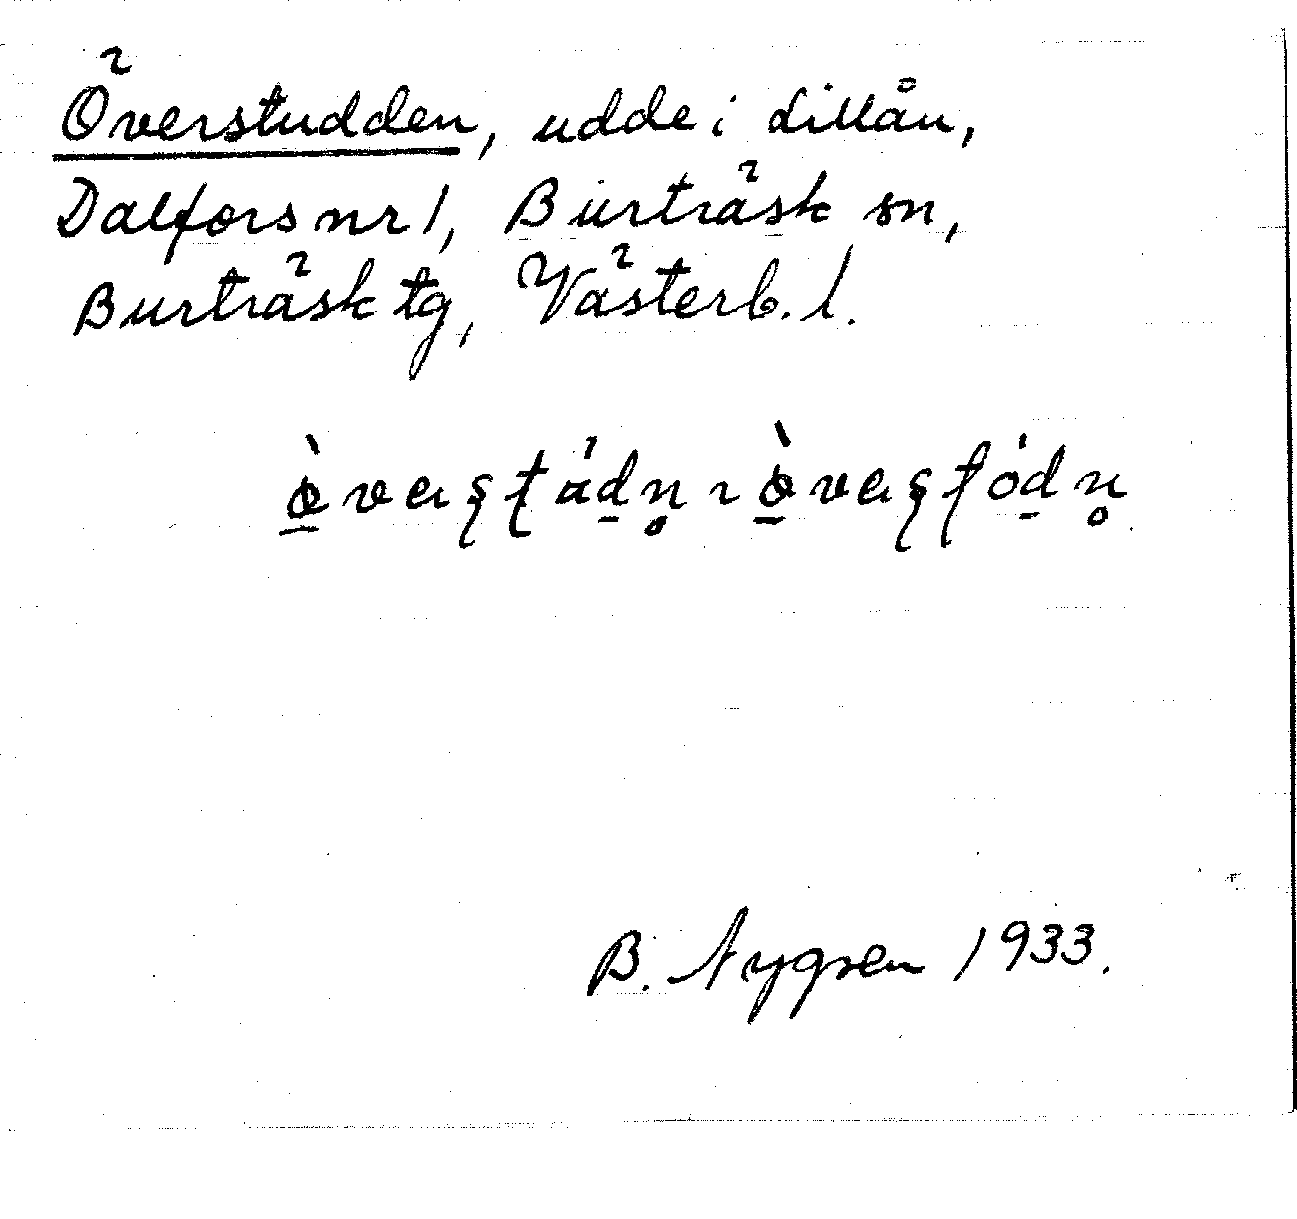 Överstudden, udde i Lillån,
Dalfors nr 1, Burträsk sn,
Burträsk tg, Västerb. l.
B. Nygren 1933.